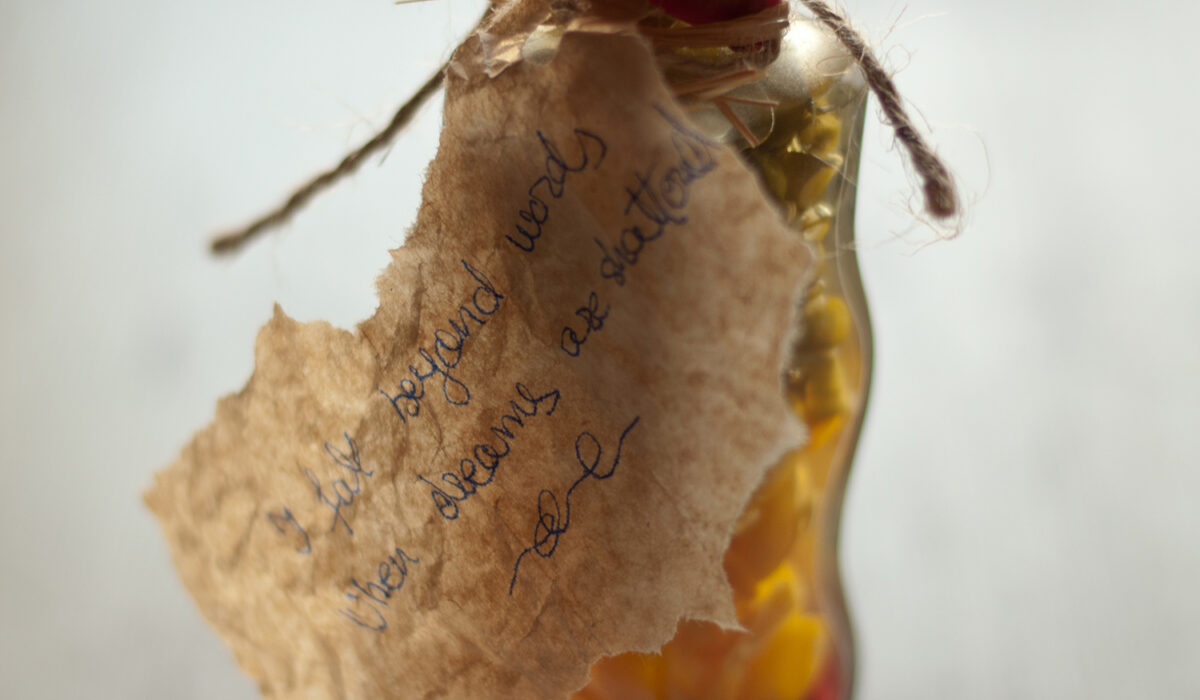 I fall beyond words
when dreams are shattered